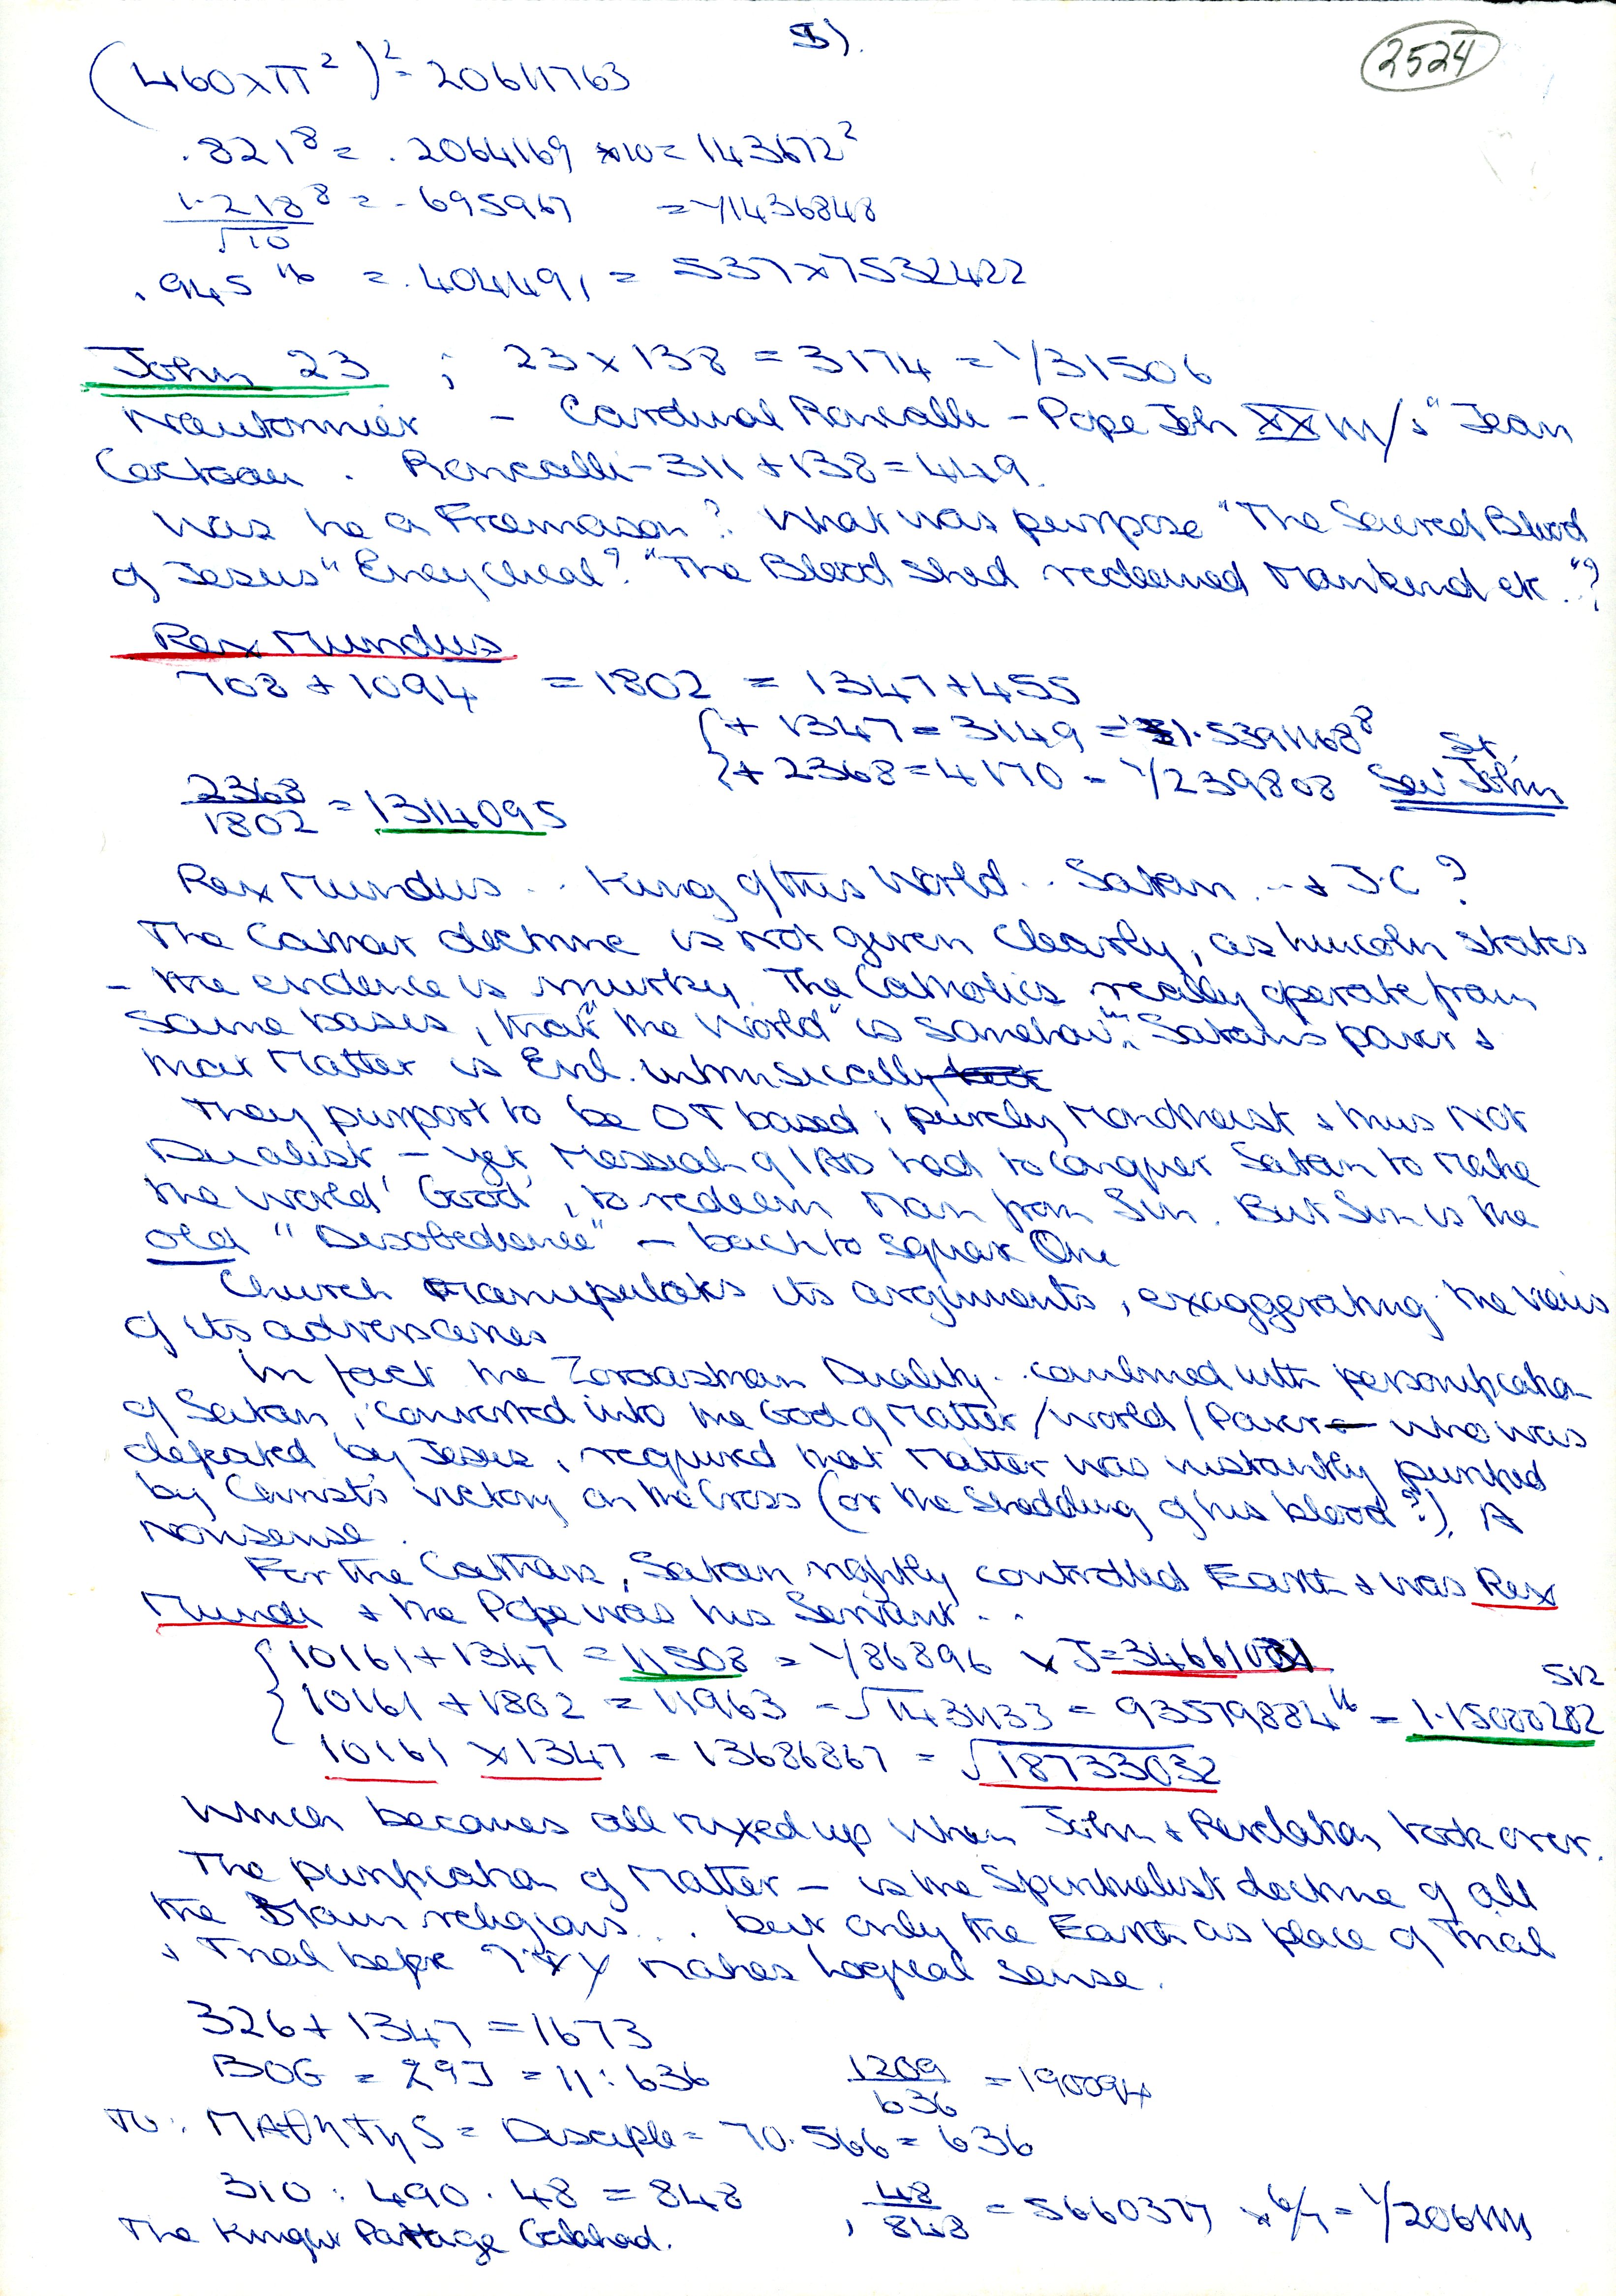 5).
2524
(460 x π²)² = 20611763
.821⁸ = .2064169 x10 = 143672²
1.218⁸ = .695967 = 1/1436848
√10
.945¹⁶ = .404491, = 537 x 7532422
John 23 ; 23 x 138 = 3174 = 1/31506
Nautonnier - Cardinal Roncalli - Pope Joh XXIII / s "Jean
Cocteau. Roncalli - 311 + 138 = 449.
Was he a Freemason? What was purpose "The Sacred Blood
of Jesus" Encyclical? "The Blood shed redeemed Mankind etc."?
Rex Mundus
708 + 1094 = 1802 = 1347 + 455
{+ 1347 = 3149 = 1.5391168⁸ St.
{+ 2368 = 4170 = 1/239808 Sei John
2368/1802 = 1314095
Rex Mundus .. King of this World .. Satan .. + J.C?
The Cathar doctrine is not given clearly, as Lincoln states
- the evidence is murky. The Catholics really operate from
same basis, that "the World" is somehow in Satan's power &
that Matter is Evil. intrinsically
They purport to be OT based; purely Monotheist & thus Not
Dualist - yet Messiah of 1AD had to conquer Satan to make
the World 'Good', to redeem Man from Sin. But Sin is the
old "Disobedience" - back to square One
Church Manipulates its arguments, exaggerating the views
of its adversaries
In fact the Zoroastrian Duality .. combined with personification
of Satan, converted into the God of Matter / World / Power - who was
defeated by Jesus, required that Matter was instantly purified
by Christ's victory on the Cross (or the shedding of his blood?). A
Nonsense.
For the Cathars, Satan rightly controlled Earth & was Rex
Mundi & the Pope was his Servant ..
{10161 + 1347 = 11508 = 1/86896 x J = 34661031
{10161 + 1802 = 11963 = √1431133 = 93579884¹⁶ = 1.15088282 512
10161 x 1347 = 13686867 = √18733032
Which becomes all mixed up when John & Revelation took over.
The purification of Matter - is the Spiritualist doctrine of all
the Main religions ... but only the Earth as place of Trial
& Trial before makes logical sense.
326 + 1347 = 1673
BOG = 293 = 11 : 636 1209/636 = 190094
TO: MAθηTηS = Disciple = 70.566 = 636
310 : 490 . 48 = 848 , 48/848 = 5660377 x 6/7 = 1/206111
The Knight Galahad.